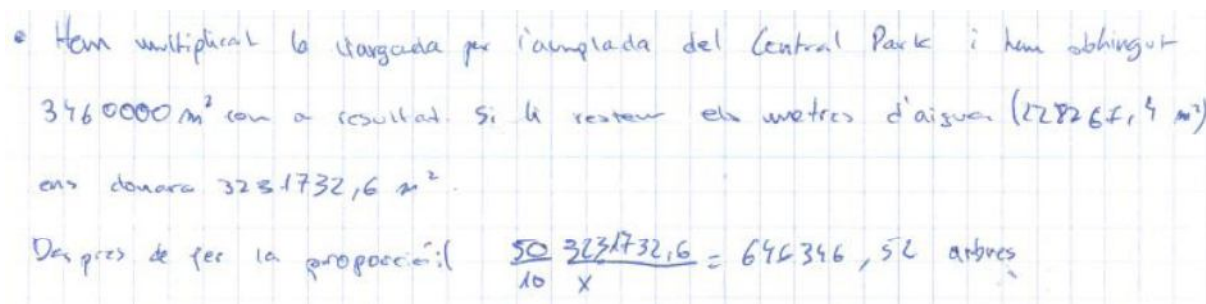 • Hem multiplicat la llargada per l'amplada del Central Park i hem obtingut
3460000 m² com a resultat. Si li restem els metres d'aigua (228267,4 m²)
ens donara 3231732,6 m².
Despres de fer la proporció: 50/10 3231732,6/x = 646346,52 arbres